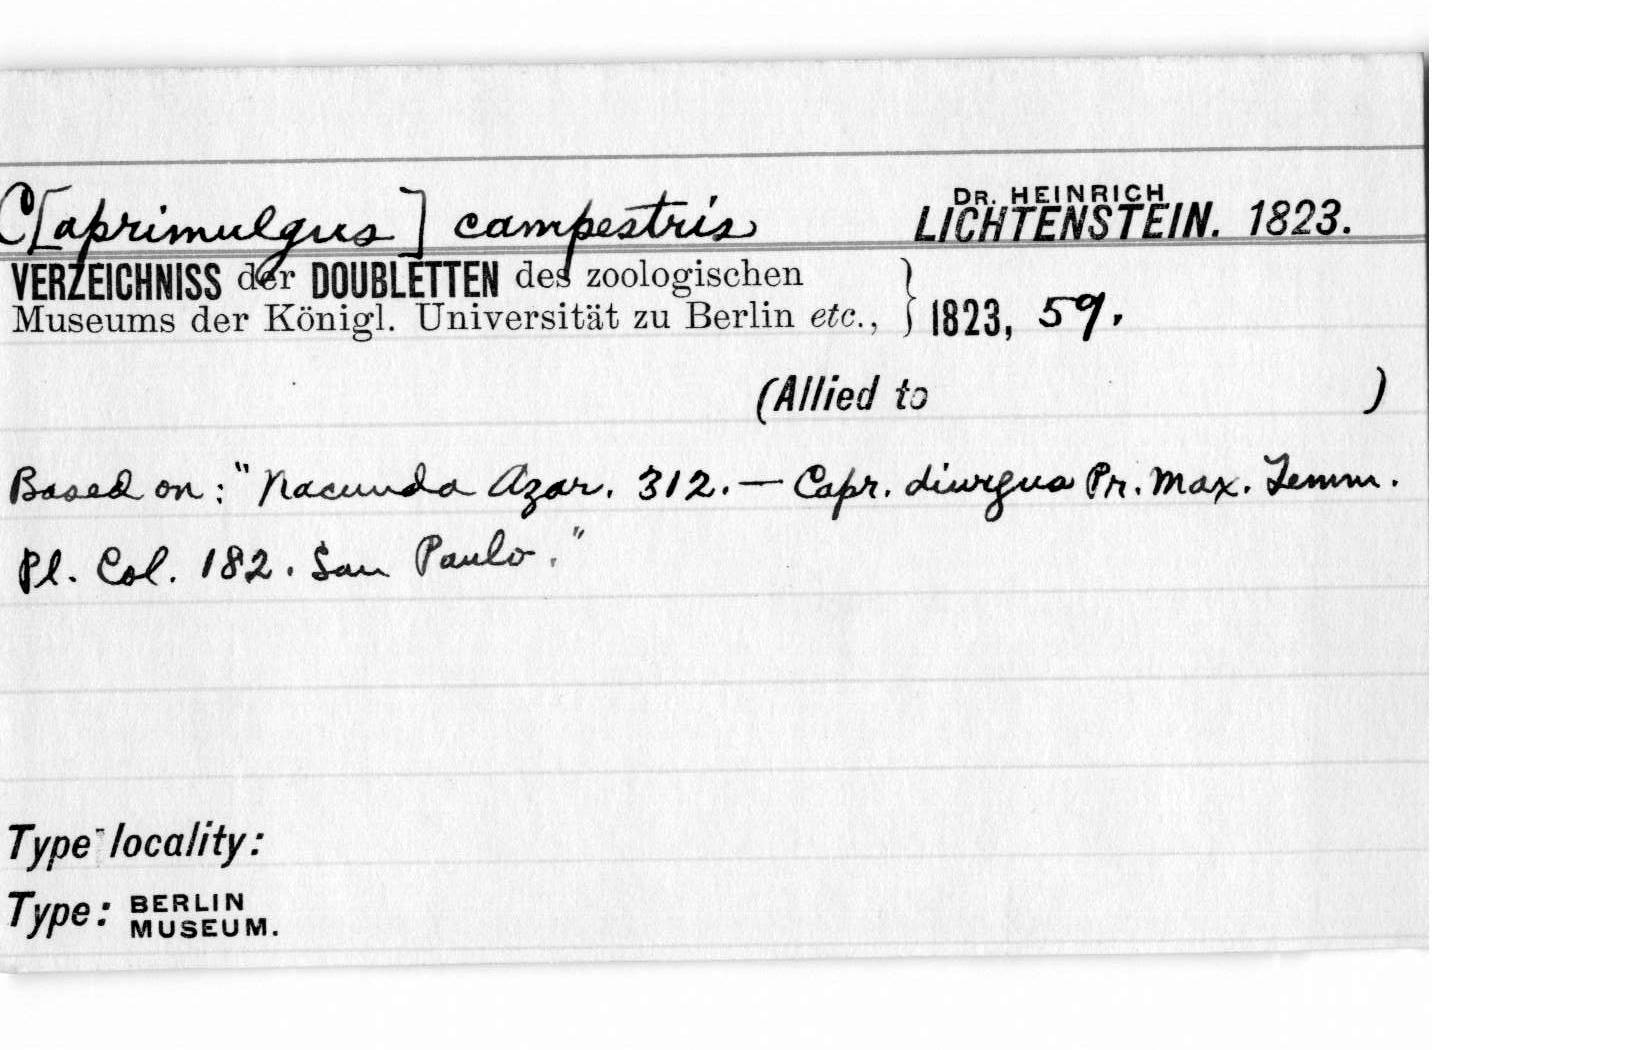 C[aprimulgus] campestris DR. HEINRICH LICHTENSTEIN. 1823.
VERZEICHNISS der DOUBLETTEN des zoologischen
Museums der Königl. Universität zu Berlin etc., } 1823, 59.
(Allied to )
Based on: "Nacunda Azar. 312. — Capr. diurgus Pr. Max. Temm.
Pl. Col. 182. San Paulo."
Type locality:
Type: BERLIN MUSEUM.